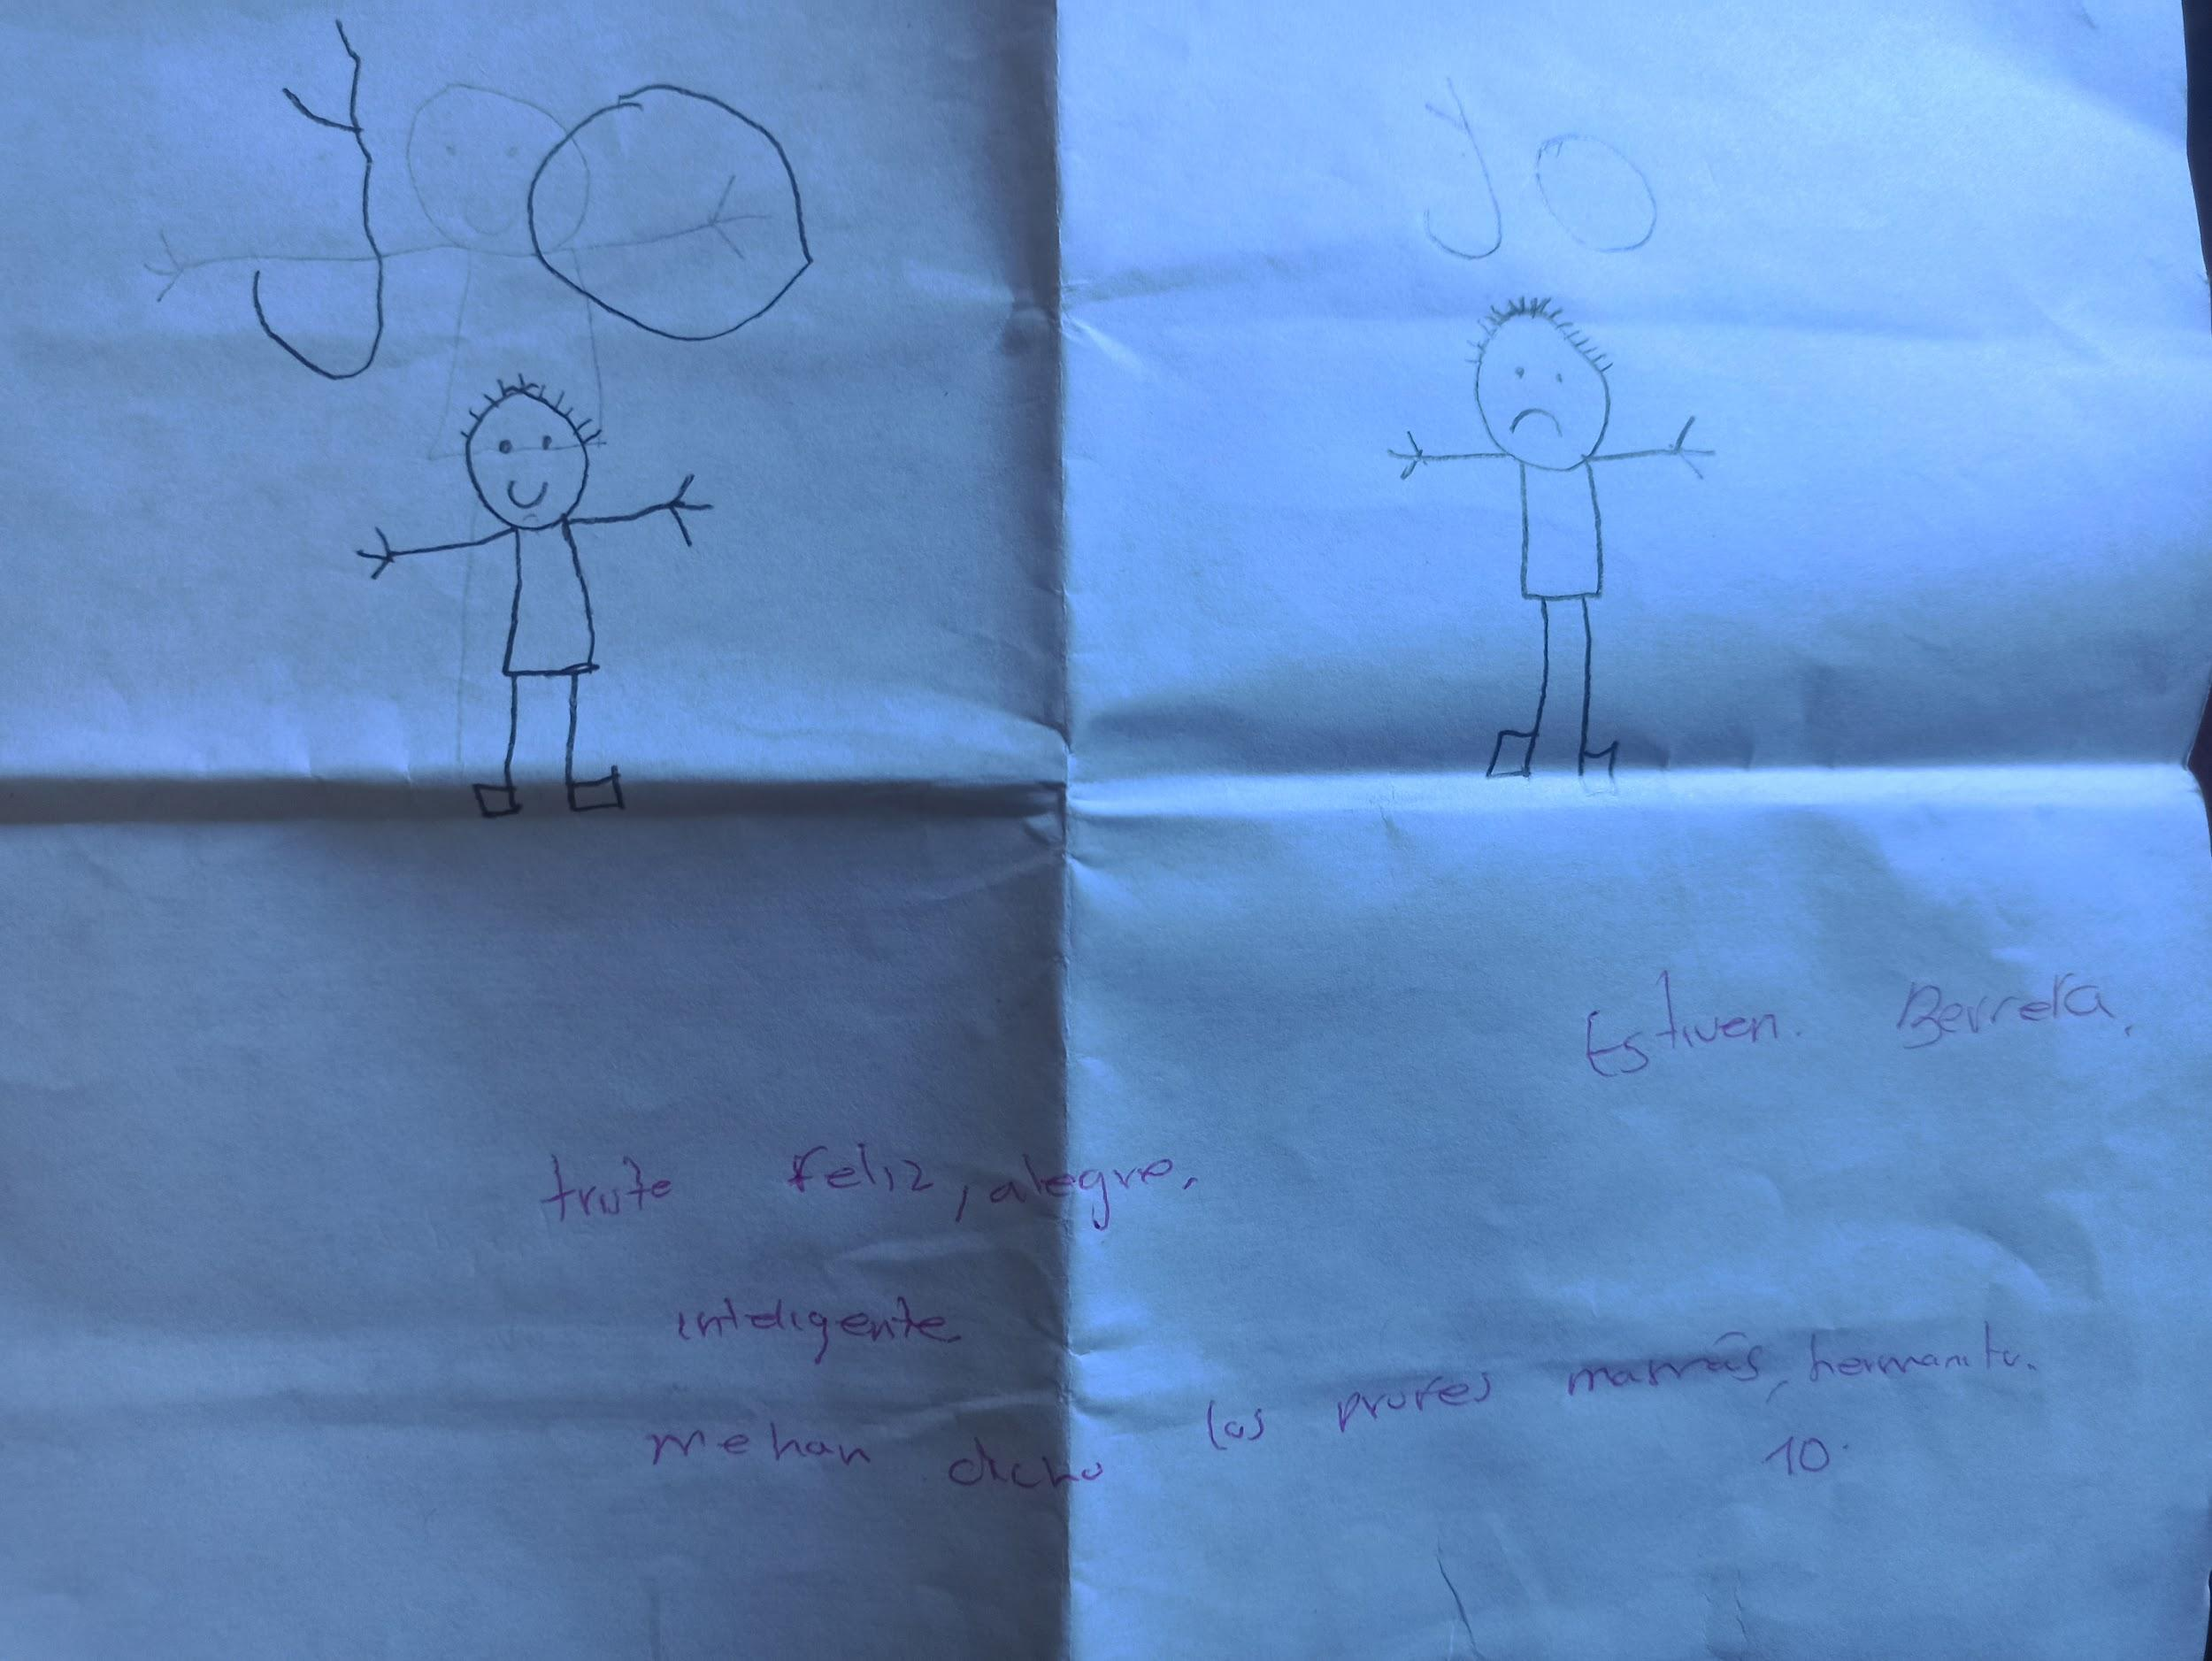 yo
yo
Estiven. Berrera.
triste feliz, alegre.
inteligente
me han dicho los profes mamás, hermanito.
10.